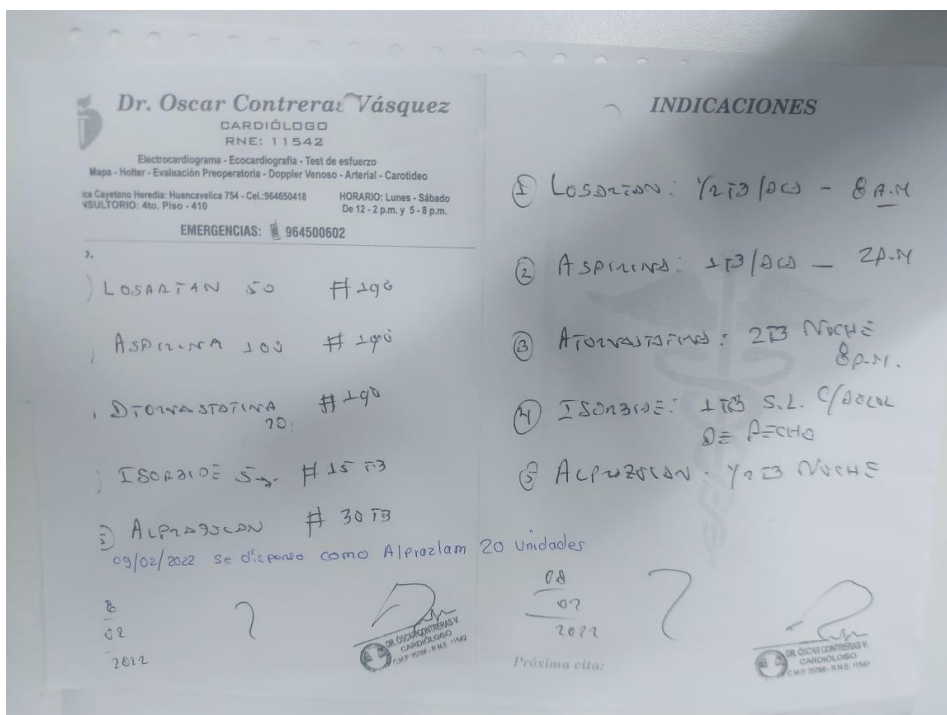 Dr. Oscar Contreras Vásquez
CARDIÓLOGO
RNE: 11542
Electrocardiograma - Ecocardiografia - Test de esfuerzo
Mapa - Holter - Evaluación Preoperatoria - Doppler Venoso - Arterial - Carotideo
ca Cayetano Heredia: Huancavelica 754 - Cel.:964650418
NSULTORIO: 4to. Piso - 410
HORARIO: Lunes - Sábado
De 12 - 2 p.m. y 5 - 8 p.m.
EMERGENCIAS: 964500602
LOSARTAN 50 #190
ASPIRINA 100 #190
ATORVASTATINA #190
20
ISORBIDE 5 #15 TB
5) ALPRAZOLAN #30 TB
09/02/2022 se dispenso como Alprazlam 20 Unidades
8
02
2022
DR. OSCAR CONTRERAS V.
CARDIÓLOGO
INDICACIONES
1 LOSARTAN: 1/2 TB/DIA - 8 A.M
2 ASPIRINA: 1 TB/DIA - 2 P.M
3 ATORVASTATINA: 2 TB NOCHE
8 P.M.
4 ISORBIDE: 1 TB S.L. C/DOLOR
DE PECHO
5 ALPRAZOLAN: 1/2 TB NOCHE
08
02
2022
Próxima cita:
DR. OSCAR CONTRERAS V.
CARDIÓLOGO